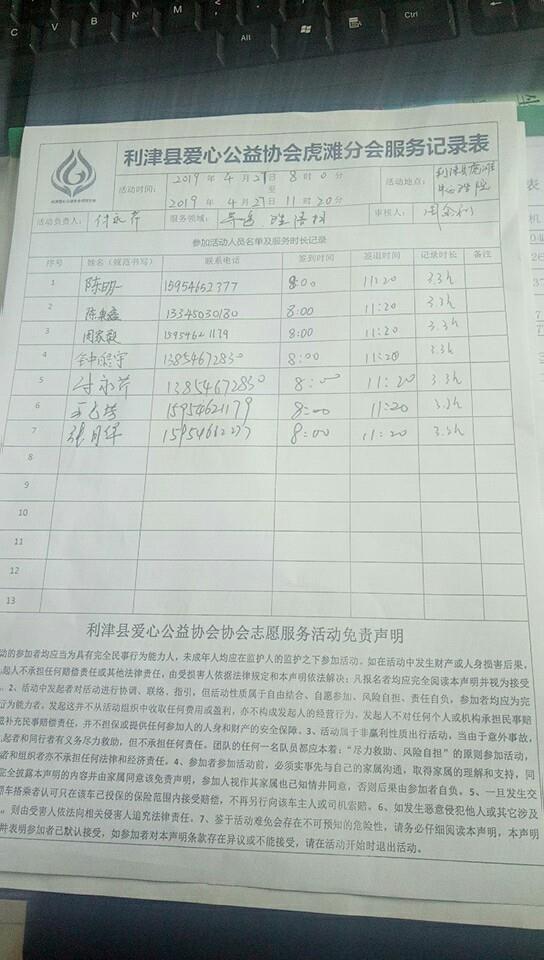 C
V
B
N
M
Alt
Alt
Ctrl
利津县爱心公益协会虎滩分会服务记录表
活动时间： 2019 年 4 月 27 日 8 时 0 分 活动地点： 利津县虎滩
至
2019 年 4 月 27 日 11 时 20 分
活动负责人： 付永芹 服务领域： 审核人：
参加活动人员名单及服务时长记录
序号 姓名（规范书写） 联系电话 签到时间 签退时间 记录时长 备注
1 陈明一 15954652377 8:00 11:20 3.3h
2 13345030180 8:00 11:20 3.3h
3 15954621179 8:00 11:20 3.3h
4 13854672830 8:00 11:20 3.3h
5 付永芹 13854672830 8:00 11:20 3.3h
6 15954621179 8:00 11:20 3.3h
7 张月华 8:00 11:20 3.3h
8
9
10
11
12
13
利津县爱心公益协会协会志愿服务活动免责声明
动的参加者均应当为具有完全民事行为能力人，未成年人均应在监护人的监护之下参加活动。如在活动中发生财产或人身损害后果，
起人不承担任何赔偿责任或其他法律责任，由受损害人依据法律规定和本声明依法解决；凡报名者均应完全阅读本声明并视为接受
。2、活动中发起者对活动进行协调、联络、指引，但活动性质属于自由结合、自愿参加、风险自担、责任自负，参加者均应为完
行为能力者，发起这并不从活动组织中收取任何费用或盈利，亦不构成发起人的经营行为，发起人不对任何个人或机构承担民事赔
或补充民事赔偿责任，并不担保或提供任何参加人的人身和财产的安全保障。3、活动属于非赢利性质出行活动，当由于意外事故、
起者和同行者有义务尽力救助，但不承担任何责任。团队的任何一名队员都应本着：“尽力救助、风险自担”的原则参加活动，
者和组织者亦不承担任何法律和经济责任。4、参加者参加活动前，必须实事先与自己的家属沟通，取得家属的理解和支持，同
完全披露本声明的内容并由家属同意该免责声明，参加人视作其家属也已知情并同意，否则后果由参加者自负。5、一旦发生交
搭车搭乘者认可只在该车已投保的保险范围内接受赔偿，不再另行向该车主人或司机索赔。6、如发生恶意侵犯他人或其它涉及
，则由受害人依法向相关侵害人追究法律责任。7、鉴于活动难免会存在不可预知的危险性，请务必仔细阅读本声明，本声明
并表明参加者已默认接受，如参加者对本声明条款存在异议或不能接受，请在活动开始时退出活动。